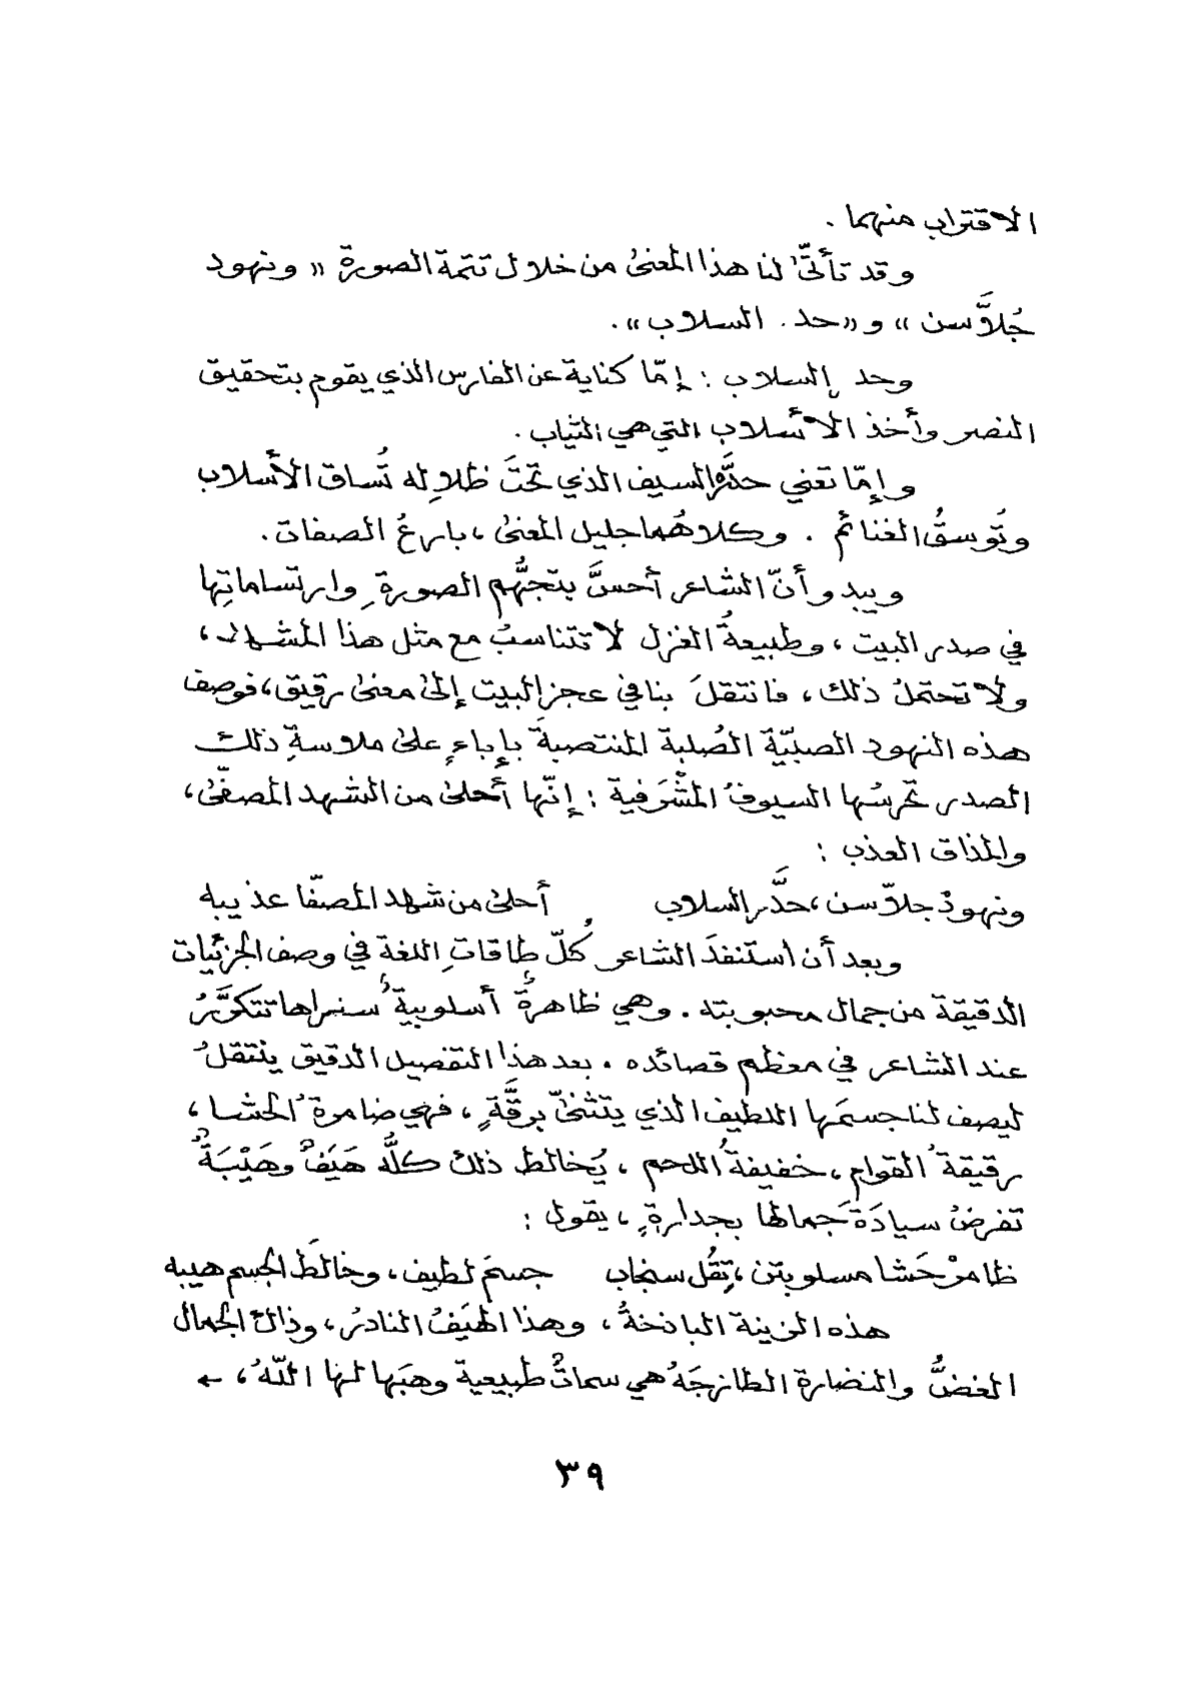 الاقتراب منهما .
وقد تأتّى لنا هذا المعنى من خلال تتمة الصورة « ونهود
جُلاَّسن » و «حد. السلاب» .
وحد السلاب : إمّا كناية عن الفارس الذي يقوم بتحقيق
النصر وأخذ الأسلاب التي هي الثياب .
وإمّا تعني حدَّ السيف الذي تحتَ ظلاله تُساق الأسلاب
وتُوسقُ الغنائم . وكلاهُما جليل المعنى ، بارعُ الصفات .
ويبدو أنّ الشاعر أحسَّ بتجهُّم الصورةِ وارتساماتِها
في صدر البيت ، وطبيعةُ الغزل لا تتناسبُ مع مثل هذا المشهد ،
ولا تحتملُ ذلك ، فانتقلَ بنا في عجز البيت إلى معنى رقيق ، فوصف
هذه النهود الصبيّة الصُلبة المنتصبةَ بإباءٍ على ملاسةِ ذلك
الصدر تحرسُها السيوفُ المشْرَفية : إنّها أحلى من الشهد المصفّى ،
والمذاق العذب :
ونهودْ جلاّسن ، حدَّر السلاب أحلى من شهد المصفّا عذيبه
وبعد أن استنفدَ الشاعر كُلّ طاقاتِ اللغة في وصف الجزئيات
الدقيقة من جمال محبوبته . وهي ظاهرةٌ أسلوبيةٌ سنراها تتكوَّرُ
عند الشاعر في معظم قصائده . بعد هذا التفصيل الدقيق ينتقلُ
ليصف لنا جسمَها اللطيف الذي يتثنّى برقَّةٍ ، فهي ضامرةُ الحشا ،
رقيقةُ القوام ، خفيفةُ اللحم ، يُخالط ذلك كلَّه هَيَفٌ وهَيْبَةٌ
تفرضُ سيادَةَ جَمالها بجدارةٍ ، يقول :
ظامرْ حَشا مسلوبتن ، تِقُل سنجاب جسمَ لطيف ، وخالَط الجسم هيبه
هذه الزينة الباذخةُ ، وهذا الهَيَفُ النادرُ ، وذاك الجمال
الغضُّ والنضارة الطازجَهُ هي سماتٌ طبيعية وهبَها لها اللّهُ ، ←
٣٩